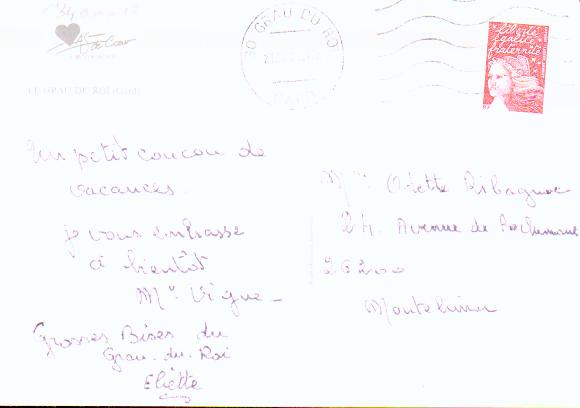 As de Cœur
LE GRAU DU ROI (Gard)
30 GRAU DU ROI
GARD
liberté
égalité
fraternité
Un petit coucou de
vacances.
je vous embrasse
à bientôt
Mme Vigne
Grosses Bises du
Grau. du. Roi
Eliette
Mme Odette Ribagnac
24. Avenue de Rochemaure
26200
Montelimar